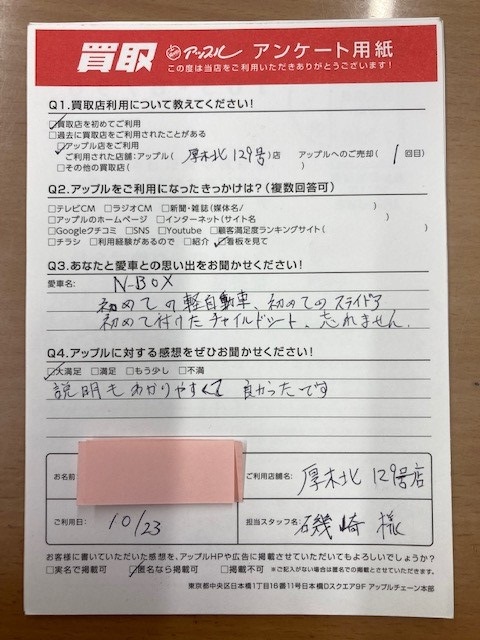 買取 アップル アンケート用紙
この度は当店をご利用いただきありがとうございます!
Q1.買取店利用について教えてください!
☑買取店を初めてご利用
□過去に買取店をご利用されたことがある
☑アップル店をご利用
ご利用された店舗:アップル( 厚木北129号 )店 アップルへのご売却( 1 回目)
□その他の買取店( )
Q2.アップルをご利用になったきっかけは?(複数回答可)
□テレビCM □ラジオCM □新聞・雑誌(媒体名/ )
□アップルのホームページ □インターネット(サイト名 )
□Googleクチコミ □SNS □Youtube □顧客満足度ランキングサイト( )
□チラシ □利用経験があるので □紹介 ☑看板を見て
Q3.あなたと愛車との思い出をお聞かせください!
愛車名: N-BOX
初めての軽自動車、初めてのスライドア
初めて付けたチャイルドシート、忘れません.
Q4.アップルに対する感想をぜひお聞かせください!
☑大満足 □満足 □もう少し □不満
説明もわかりやすくて 良かったです
お名前 ご利用店舗名: 厚木北129号店
ご利用日: 10/23 担当スタッフ名: 磯崎 様
お客様に書いていただいた感想を、アップルHPや広告に掲載させていただいてもよろしいでしょうか?
□実名で掲載可 ☑匿名なら掲載可 □掲載不可 ※ご記入がない場合は匿名での掲載とさせていただきます。
東京都中央区日本橋1丁目16番11号日本橋Dスクエア9F アップルチェーン本部